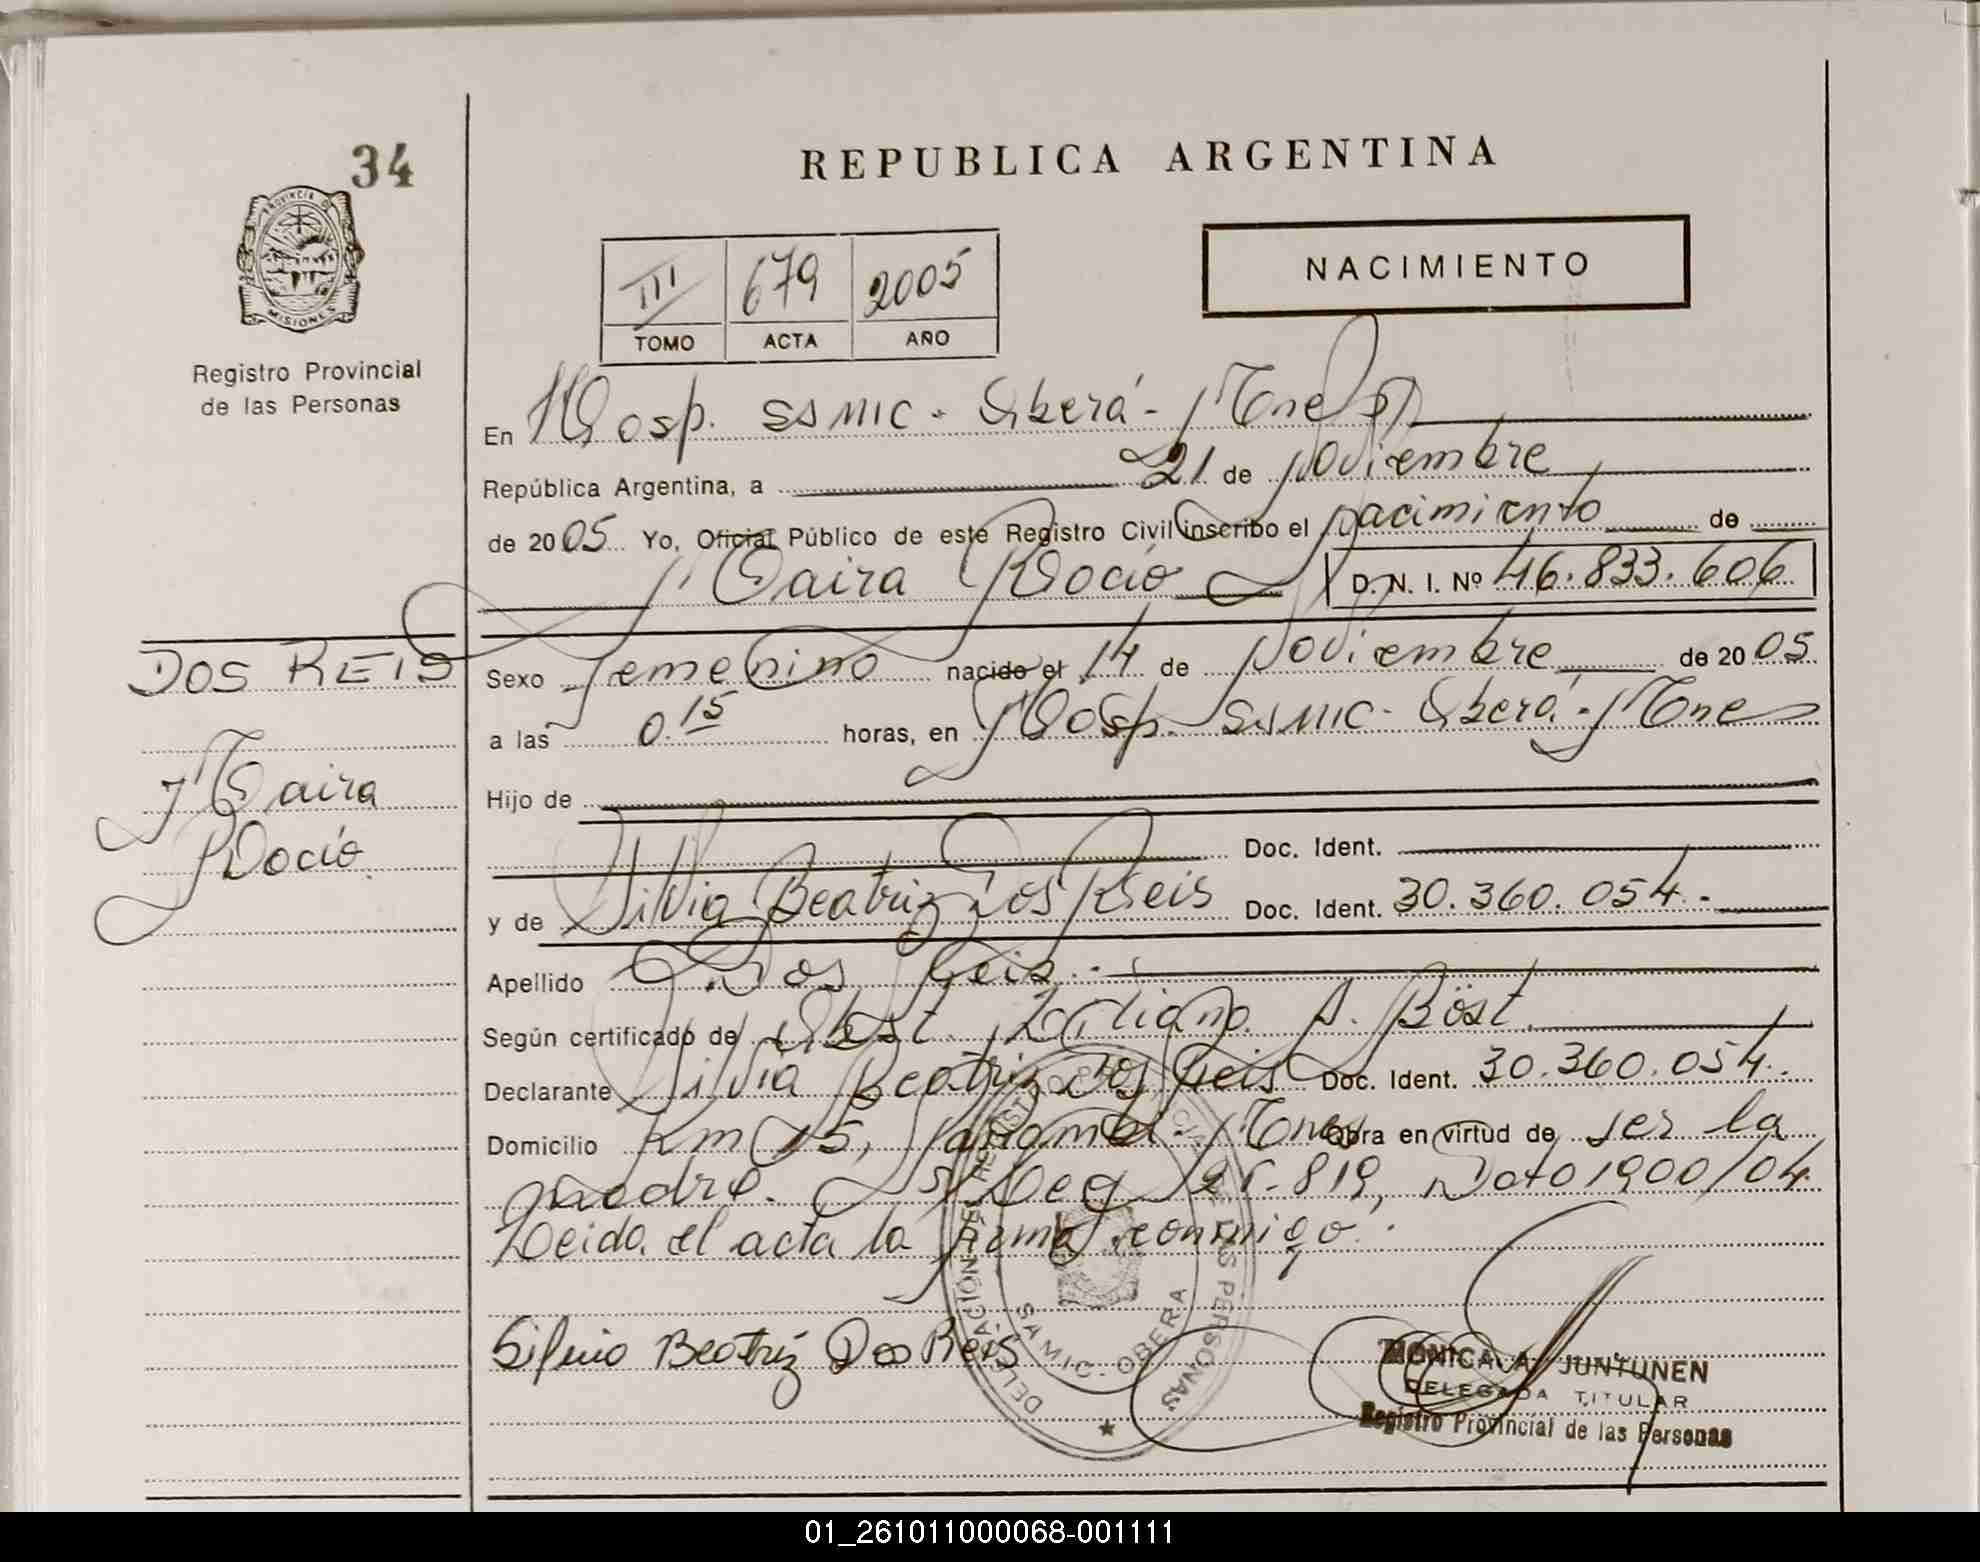 34
REPUBLICA ARGENTINA
PROVINCIA DE
MISIONES
Registro Provincial
de las Personas
III 679 2005
TOMO ACTA AÑO
NACIMIENTO
En Hosp. SAMIC - Oberá - Mnes
República Argentina, a 21 de Noviembre
de 2005 Yo, Oficial Público de este Registro Civil inscribo el nacimiento de
Maira Rocío D. N. I. Nº 46.833.606
DOS REIS
Maira
Rocío
Sexo Femenino nacido el 14 de Noviembre de 2005
a las 0.15 horas, en Hosp. SAMIC - Oberá - Mnes
Hijo de
Doc. Ident.
y de Silvia Beatriz Dos Reis Doc. Ident. 30.360.054.-
Apellido Dos Reis.-
Según certificado de Obst. A. Böst
Declarante Silvia Beatriz Dos Reis Doc. Ident. 30.360.054.
Domicilio Km 15, Panambí - Mnes Obra en virtud de ser la
madre. S/Leg 26.819, Dto 1900/04.
Leida el acta la firma conmigo.
Silvia Beatriz Dos Reis
DELEGACIÓN DEL REGISTRO PROVINCIAL DE LAS PERSONAS
SAMIC - OBERA
MONICA A. JUNTUNEN
DELEGADA TITULAR
Registro Provincial de las Personas
01_261011000068-001111